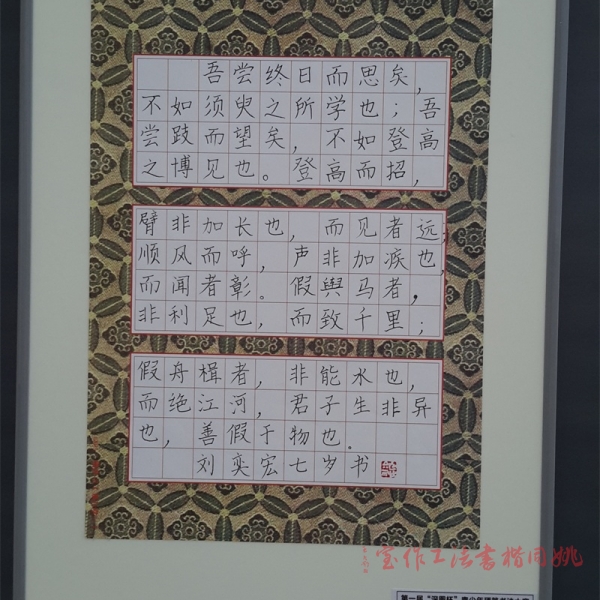 吾尝终日而思矣，
不如须臾之所学也；吾
尝跂而望矣，不如登高
之博见也。登高而招，
臂非加长也，而见者远；
顺风而呼，声非加疾也，
而闻者彰。假舆马者，
非利足也，而致千里；
假舟楫者，非能水也，
而绝江河，君子生非异
也，善假于物也。
刘奕宏七岁书
姚同楷書法工作室